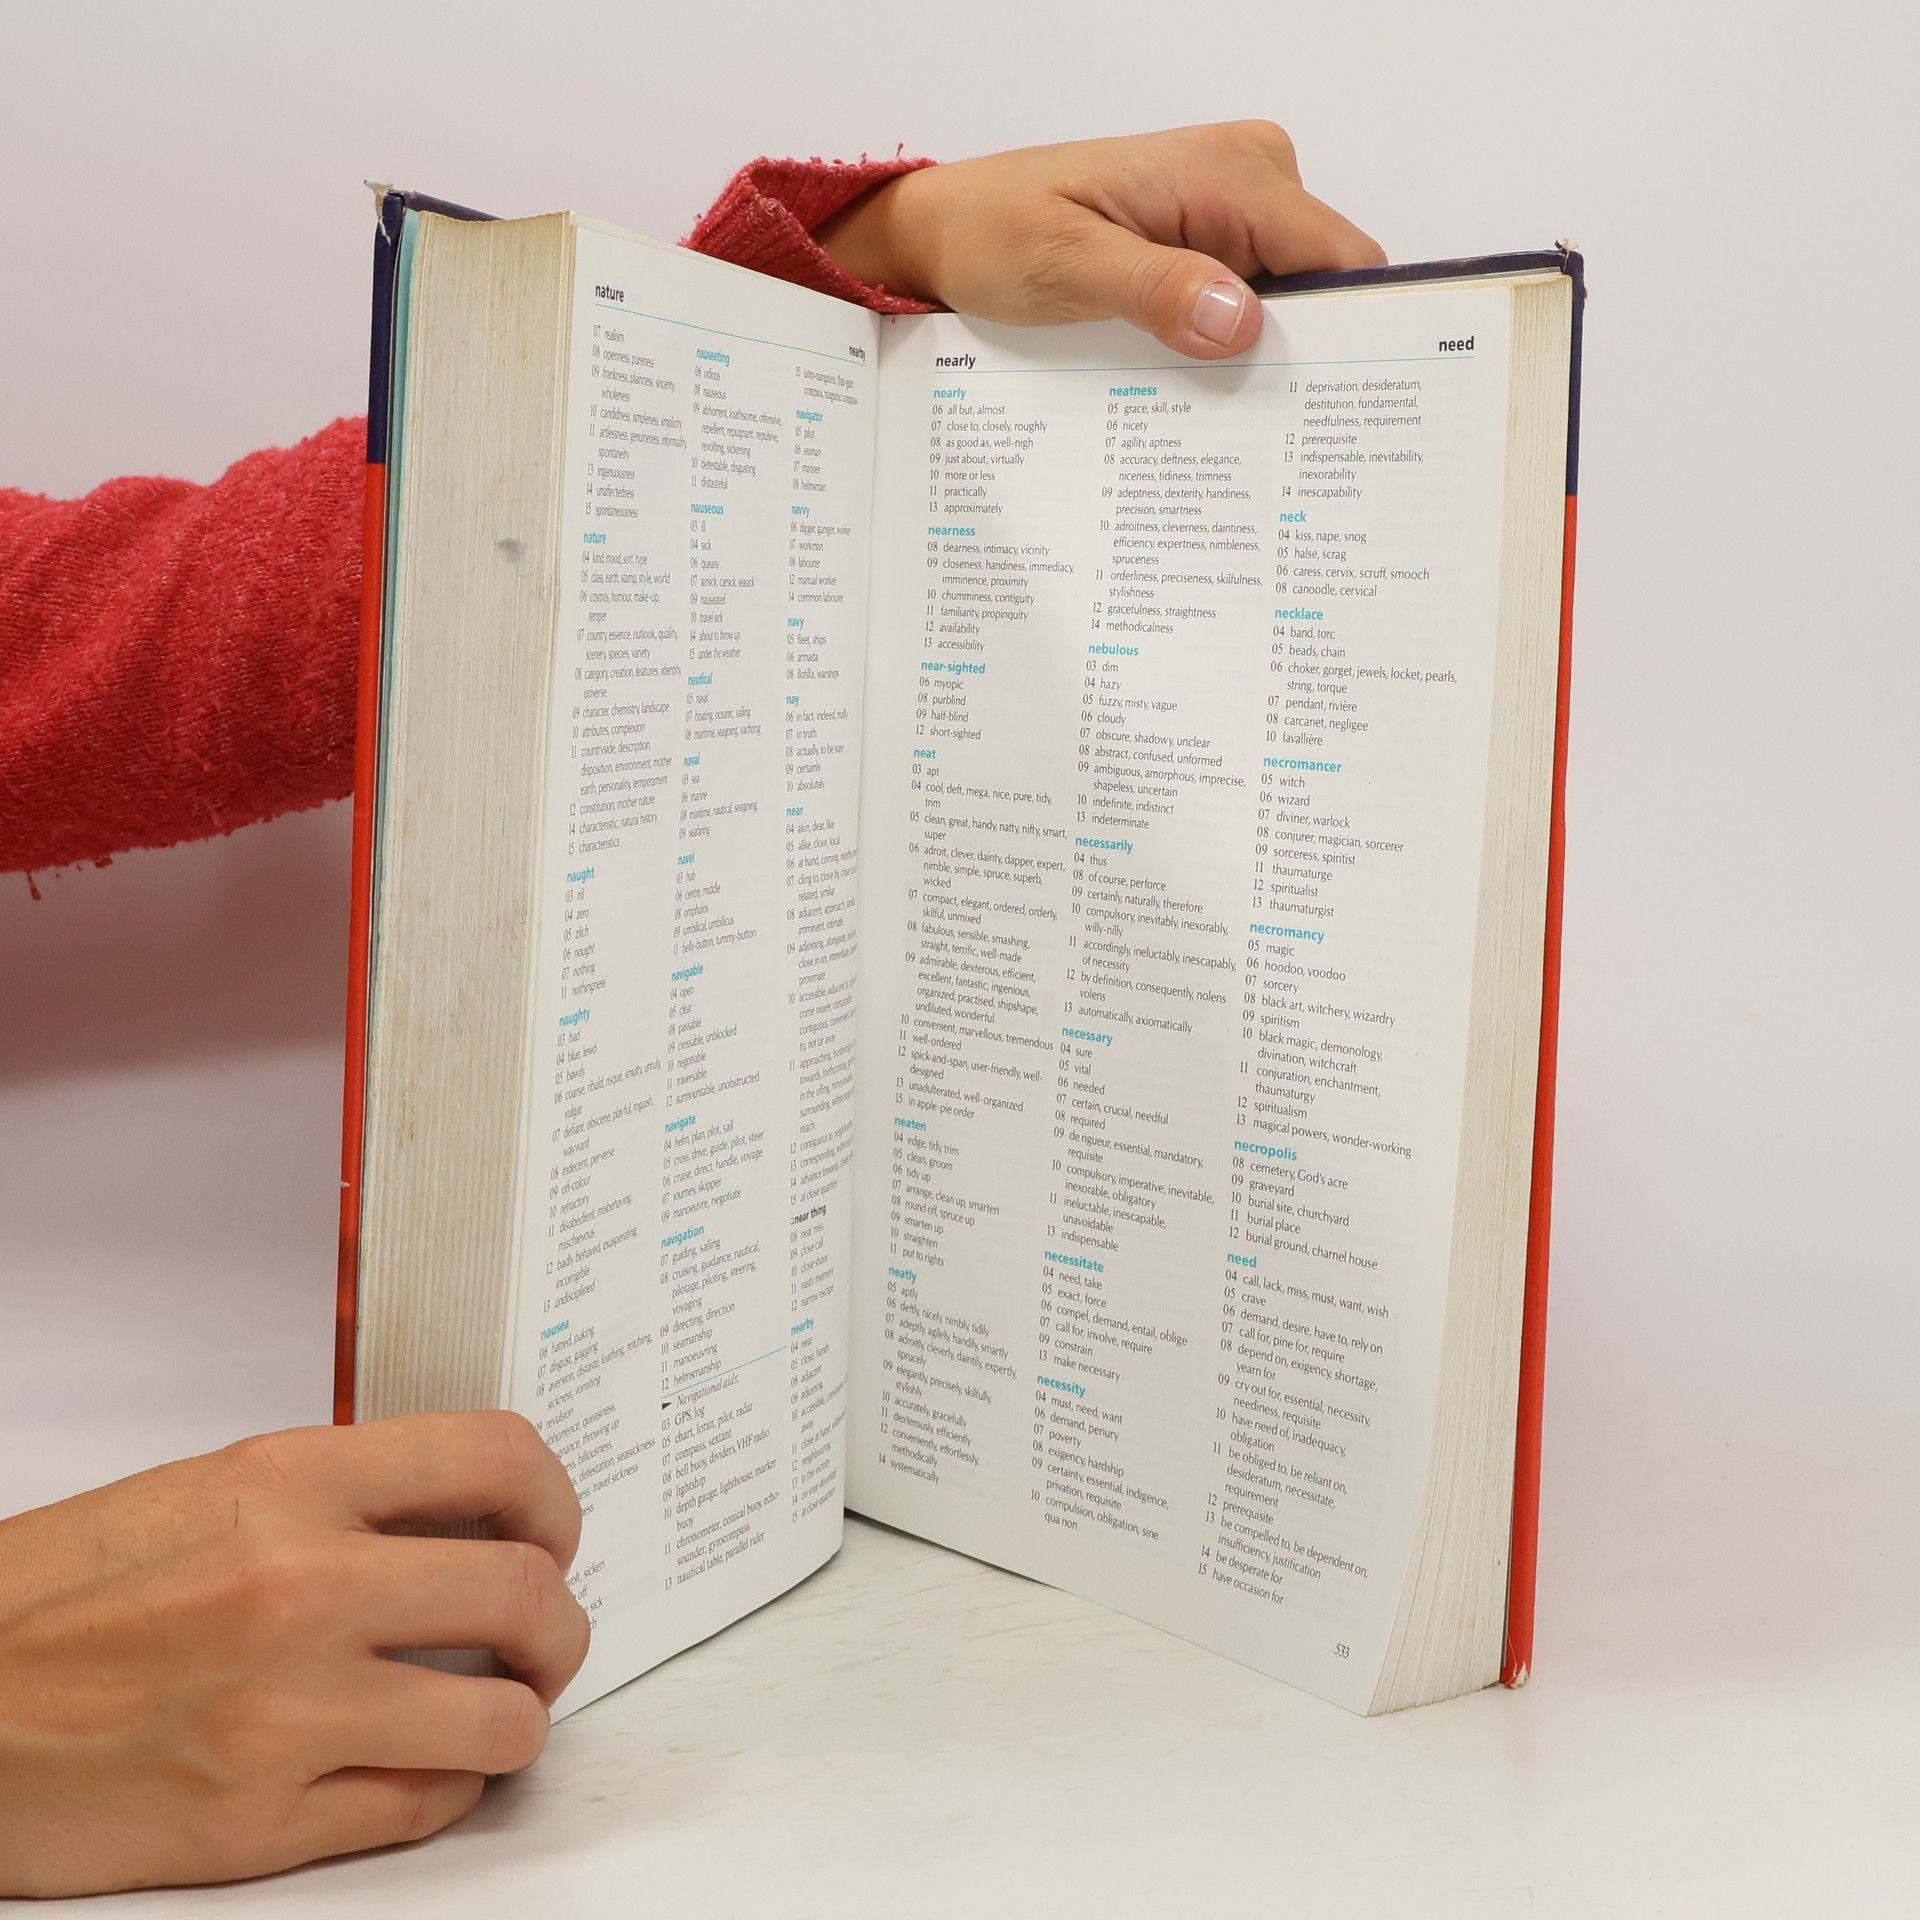 nature
nearby
07 realism
08 openness, pureness
09 frankness, plainness, sincerity,
wholeness
10 candidness, simpleness, simplicity
11 artlessness, genuineness, informality,
spontaneity
13 ingenuousness
14 unaffectedness
15 spontaneousness
nature
04 kind, mood, sort, type
05 class, earth, stamp, style, world
06 cosmos, humour, make-up,
temper
07 country, essence, outlook, quality,
scenery, species, variety
08 category, creation, features, identity,
universe
09 character, chemistry, landscape
10 attributes, complexion
11 countryside, description,
disposition, environment, mother
earth, personality, temperament
12 constitution, mother nature
14 characteristic, natural history
15 characteristics
naught
03 nil
04 zero
05 zilch
06 nought
07 nothing
11 nothingness
naughty
03 bad
04 blue, lewd
05 bawdy
06 coarse, ribald, risqué, smutty, unruly,
vulgar
07 defiant, obscene, playful, roguish,
wayward
08 indecent, perverse
09 off-colour
10 refractory
11 disobedient, misbehaving,
mischievous
12 badly behaved, exasperating,
incorrigible
13 undisciplined
nausea
06 hatred, puking
07 disgust, gagging
08 aversion, distaste, loathing, retching,
sickness, vomiting
09 revulsion
abhorrence, queasiness,
throwing up
biliousness,
detestation, seasickness
travel sickness
sicken
off
sick
nauseating
06 odious
08 nauseous
09 abhorrent, loathsome, offensive,
repellent, repugnant, repulsive,
revolting, sickening
10 detestable, disgusting
11 distasteful
nauseous
03 ill
04 sick
06 queasy
07 airsick, carsick, seasick
09 nauseated
10 travel sick
14 about to throw up
15 under the weather
nautical
05 naval
07 boating, oceanic, sailing
08 maritime, seagoing, yachting
naval
03 sea
06 marine
08 maritime, nautical, seagoing
09 seafaring
navel
03 hub
06 centre, middle
08 omphalos
09 umbilical, umbilicus
11 belly-button, tummy-button
navigable
04 open
05 clear
08 passable
09 crossable, unblocked
10 negotiable
11 traversable
12 surmountable, unobstructed
navigate
04 helm, plan, plot, sail
05 cross, drive, guide, pilot, steer
06 cruise, direct, handle, voyage
07 journey, skipper
09 manoeuvre, negotiate
navigation
07 guiding, sailing
08 cruising, guidance, nautical,
pilotage, piloting, steering,
voyaging
09 directing, direction
10 seamanship
11 manoeuvring
12 helmsmanship
► Navigational aids:
03 GPS, log
05 chart, loran, pilot, radar
07 compass, sextant
08 bell buoy, dividers, VHF radio
09 lightship
10 depth gauge, lighthouse, marker
buoy
11 chronometer, conical buoy, echo-
sounder, gyrocompass
13 nautical table, parallel ruler
15 astro-navigation, flux-gate
compass, magnetic compass
navigator
05 pilot
06 seaman
07 mariner
08 helmsman
navvy
06 digger, ganger, worker
07 workman
08 labourer
12 manual worker
14 common labourer
navy
05 fleet, ships
06 armada
08 flotilla, warships
nay
06 in fact, indeed, really
07 in truth
08 actually, to be sure
09 certainly
10 absolutely
near
04 akin, dear, like
05 alike, close, local
06 at hand, coming, nearby
07 cling to, close by, close to
related, similar
08 adjacent, approach,
imminent, intimate
09 adjoining, alongside,
close in on, immediate,
proximate
10 accessible, adjacent to,
come nearer, comparable
contiguous, convenient,
to, not far away
11 approaching, bordering on
towards, forthcoming,
in the offing,
surrounding, within
reach
12 contiguous to,
13 corresponding,
14 advance towards,
15 at close quarters
near thing
08 near miss
09 close call
10 close shave
11 nasty moment
12 narrow escape
nearby
04 near
05 close, handy
08 adjacent
09 adjoining
10 accessible,
away
11 close at hand,
12 neighbouring
13 in the vicinity
14 on your doorstep
15 at close quarters
nearly
need
nearly
06 all but, almost
07 close to, closely, roughly
08 as good as, well-nigh
09 just about, virtually
10 more or less
11 practically
13 approximately
nearness
08 dearness, intimacy, vicinity
09 closeness, handiness, immediacy,
imminence, proximity
10 chumminess, contiguity
11 familiarity, propinquity
12 availability
13 accessibility
near-sighted
06 myopic
08 purblind
09 half-blind
12 short-sighted
neat
03 apt
04 cool, deft, mega, nice, pure, tidy,
trim
05 clean, great, handy, natty, nifty, smart,
super
06 adroit, clever, dainty, dapper, expert,
nimble, simple, spruce, superb,
wicked
07 compact, elegant, ordered, orderly,
skilful, unmixed
08 fabulous, sensible, smashing,
straight, terrific, well-made
09 admirable, dexterous, efficient,
excellent, fantastic, ingenious,
organized, practised, shipshape,
undiluted, wonderful
10 convenient, marvellous, tremendous
11 well-ordered
12 spick-and-span, user-friendly, well-
designed
13 unadulterated, well-organized
15 in apple-pie order
neaten
04 edge, tidy, trim
05 clean, groom
06 tidy up
07 arrange, clean up, smarten
08 round off, spruce up
09 smarten up
10 straighten
11 put to rights
neatly
05 aptly
06 deftly, nicely, nimbly, tidily
07 adeptly, agilely, handily, smartly
08 adroitly, cleverly, daintily, expertly,
sprucely
09 elegantly, precisely, skilfully,
stylishly
10 accurately, gracefully
11 dexterously, efficiently
12 conveniently, effortlessly,
methodically
14 systematically
neatness
05 grace, skill, style
06 nicety
07 agility, aptness
08 accuracy, deftness, elegance,
niceness, tidiness, trimness
09 adeptness, dexterity, handiness,
precision, smartness
10 adroitness, cleverness, daintiness,
efficiency, expertness, nimbleness,
spruceness
11 orderliness, preciseness, skilfulness,
stylishness
12 gracefulness, straightness
14 methodicalness
nebulous
03 dim
04 hazy
05 fuzzy, misty, vague
06 cloudy
07 obscure, shadowy, unclear
08 abstract, confused, unformed
09 ambiguous, amorphous, imprecise,
shapeless, uncertain
10 indefinite, indistinct
13 indeterminate
necessarily
04 thus
08 of course, perforce
09 certainly, naturally, therefore
10 compulsory, inevitably, inexorably,
willy-nilly
11 accordingly, ineluctably, inescapably,
of necessity
12 by definition, consequently, nolens
volens
13 automatically, axiomatically
necessary
04 sure
05 vital
06 needed
07 certain, crucial, needful
08 required
09 de rigueur, essential, mandatory,
requisite
10 compulsory, imperative, inevitable,
inexorable, obligatory
11 ineluctable, inescapable,
unavoidable
13 indispensable
necessitate
04 need, take
05 exact, force
06 compel, demand, entail, oblige
07 call for, involve, require
09 constrain
13 make necessary
necessity
04 must, need, want
06 demand, penury
07 poverty
08 exigency, hardship
09 certainty, essential, indigence,
privation, requisite
10 compulsion, obligation, sine
qua non
11 deprivation, desideratum,
destitution, fundamental,
needfulness, requirement
12 prerequisite
13 indispensable, inevitability,
inexorability
14 inescapability
neck
04 kiss, nape, snog
05 halse, scrag
06 caress, cervix, scruff, smooch
08 canoodle, cervical
necklace
04 band, torc
05 beads, chain
06 choker, gorget, jewels, locket, pearls,
string, torque
07 pendant, rivière
08 carcanet, negligee
10 lavallière
necromancer
05 witch
06 wizard
07 diviner, warlock
08 conjurer, magician, sorcerer
09 sorceress, spiritist
11 thaumaturge
12 spiritualist
13 thaumaturgist
necromancy
05 magic
06 hoodoo, voodoo
07 sorcery
08 black art, witchery, wizardry
09 spiritism
10 black magic, demonology,
divination, witchcraft
11 conjuration, enchantment,
thaumaturgy
12 spiritualism
13 magical powers, wonder-working
necropolis
08 cemetery, God's acre
09 graveyard
10 burial site, churchyard
11 burial place
12 burial ground, charnel house
need
04 call, lack, miss, must, want, wish
05 crave
06 demand, desire, have to, rely on
07 call for, pine for, require
08 depend on, exigency, shortage,
yearn for
09 cry out for, essential, necessity,
neediness, requisite
10 have need of, inadequacy,
obligation
11 be obliged to, be reliant on,
desideratum, necessitate,
requirement
12 prerequisite
13 be compelled to, be dependent on,
insufficiency, justification
14 be desperate for
15 have occasion for
533